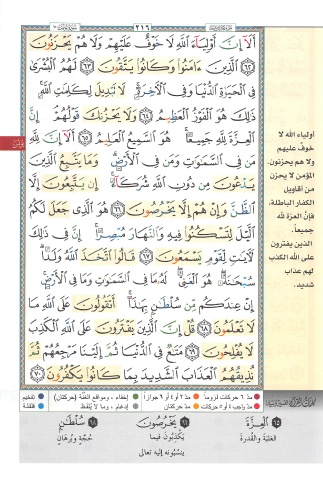 ٢١٦
أَلَآ إِنَّ أَوْلِيَآءَ ٱللَّهِ لَا خَوْفٌ عَلَيْهِمْ وَلَا هُمْ يَحْزَنُونَ
﴿٦٢﴾ ٱلَّذِينَ ءَامَنُوا۟ وَكَانُوا۟ يَتَّقُونَ ﴿٦٣﴾ لَهُمُ ٱلْبُشْرَىٰ
فِى ٱلْحَيَوٰةِ ٱلدُّنْيَا وَفِى ٱلْءَاخِرَةِ ۚ لَا تَبْدِيلَ لِكَلِمَٰتِ ٱللَّهِ ۚ
ذَٰلِكَ هُوَ ٱلْفَوْزُ ٱلْعَظِيمُ ﴿٦٤﴾ وَلَا يَحْزُنكَ قَوْلُهُمْ ۘ إِنَّ
ٱلْعِزَّةَ لِلَّهِ جَمِيعًا ۚ هُوَ ٱلسَّمِيعُ ٱلْعَلِيمُ ﴿٦٥﴾ أَلَآ إِنَّ لِلَّهِ
مَن فِى ٱلسَّمَٰوَٰتِ وَمَن فِى ٱلْأَرْضِ ۗ وَمَا يَتَّبِعُ ٱلَّذِينَ
يَدْعُونَ مِن دُونِ ٱللَّهِ شُرَكَآءَ ۚ إِن يَتَّبِعُونَ إِلَّا
ٱلظَّنَّ وَإِنْ هُمْ إِلَّا يَخْرُصُونَ ﴿٦٦﴾ هُوَ ٱلَّذِى جَعَلَ لَكُمُ
ٱلَّيْلَ لِتَسْكُنُوا۟ فِيهِ وَٱلنَّهَارَ مُبْصِرًا ۚ إِنَّ فِى ذَٰلِكَ
لَءَايَٰتٍ لِّقَوْمٍ يَسْمَعُونَ ﴿٦٧﴾ قَالُوا۟ ٱتَّخَذَ ٱللَّهُ وَلَدًا ۗ
سُبْحَٰنَهُۥ ۖ هُوَ ٱلْغَنِىُّ ۖ لَهُۥ مَا فِى ٱلسَّمَٰوَٰتِ وَمَا فِى ٱلْأَرْضِ ۚ
إِنْ عِندَكُم مِّن سُلْطَٰنٍۭ بِهَٰذَآ ۚ أَتَقُولُونَ عَلَى ٱللَّهِ مَا
لَا تَعْلَمُونَ ﴿٦٨﴾ قُلْ إِنَّ ٱلَّذِينَ يَفْتَرُونَ عَلَى ٱللَّهِ ٱلْكَذِبَ
لَا يُفْلِحُونَ ﴿٦٩﴾ مَتَٰعٌ فِى ٱلدُّنْيَا ثُمَّ إِلَيْنَا مَرْجِعُهُمْ ثُمَّ
نُذِيقُهُمُ ٱلْعَذَابَ ٱلشَّدِيدَ بِمَا كَانُوا۟ يَكْفُرُونَ ﴿٧٠﴾
أولياء الله لا
خوف عليهم
ولا هم يحزنون.
المؤمن لا يحزن
من أقاويل
الكفار الباطلة،
فإنّ العزة لله
جميعاً.
الذين يفترون
على الله الكذب
لهم عذاب
شديد.
يونس
مدّ ٦ حركات لزوماً مدّ ٢ أو ٤ أو ٦ جوازاً إخفاء، ومواقع الغنّة (حركتان) تفخيم
مدّ واجب ٤ أو ٥ حركات مدّ حركتان إدغام، وما لا يُلفظ قلقلة
٦٥ ٱلْعِزَّةَ
الغلبة والقدرة
٦٦ يَخْرُصُونَ
يكذبون فيما
ينسبونه إليه تعالى
٦٨ سُلْطَٰنٍ
حُجّة وبُرهان